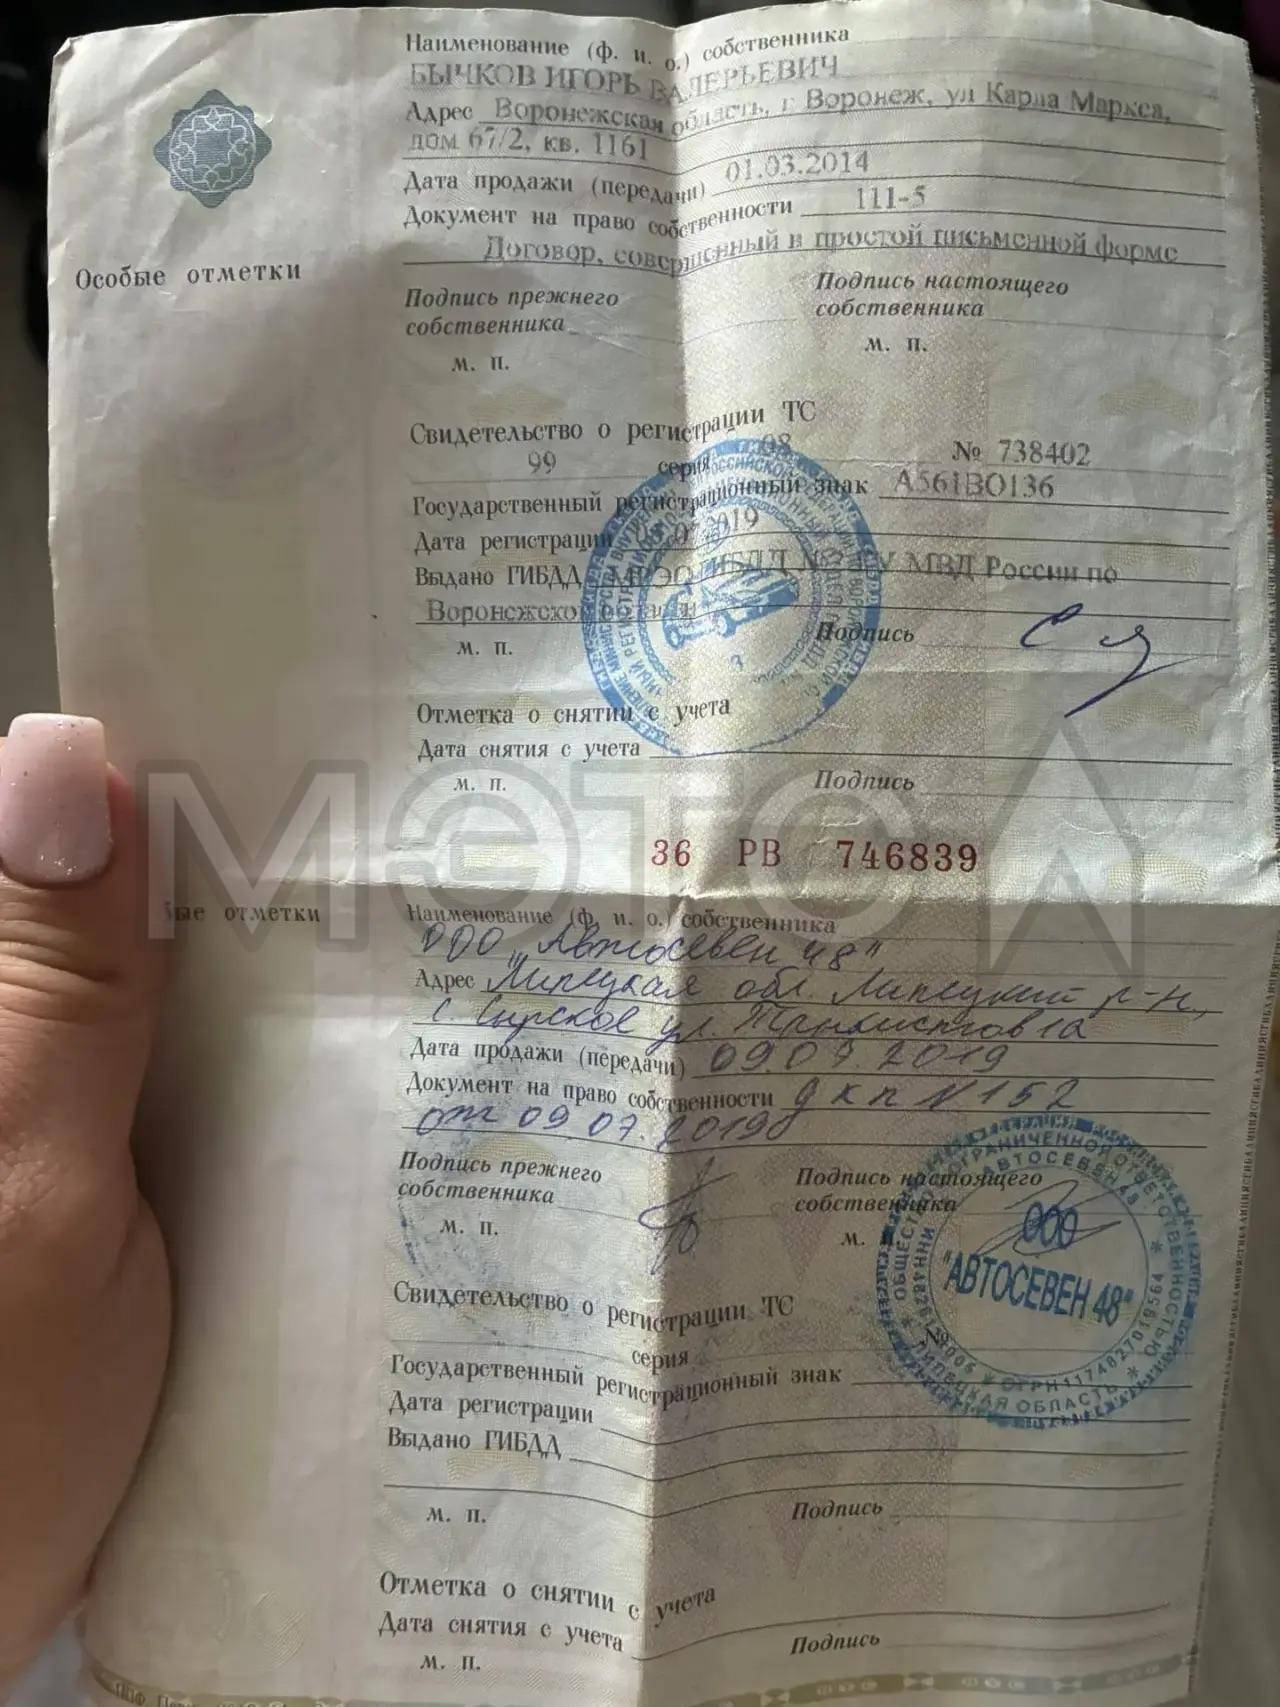 Наименование (ф. и. о.) собственника
БЫЧКОВ ИГОРЬ ВАЛЕРЬЕВИЧ
Адрес Воронежская область, г Воронеж, ул Карла Маркса,
дом 67/2, кв. 1161
Дата продажи (передачи) 01.03.2014
Документ на право собственности 111-5
Договор, совершенный в простой письменной форме
Особые отметки
Подпись прежнего собственника
Подпись настоящего собственника
м. п.
м. п.
Свидетельство о регистрации ТС
99 серия 08 № 738402
Государственный регистрационный знак А561ВО136
Дата регистрации 07.2019
Выдано ГИБДД МРЭО ГИБДД № ГУ МВД России по
Воронежской области
м. п. Подпись
Отметка о снятии с учета
Дата снятия с учета
м. п. Подпись
МЭТСА
36 РВ 746839
ые отметки
Наименование (ф. и. о.) собственника
ООО "Автосевен 48"
Адрес Липецкая обл. Липецкий р-н,
с. Сырское ул. 1а
Дата продажи (передачи) 09.07.2019
Документ на право собственности дкп N152
от 09.07.2019
Подпись прежнего собственника
Подпись настоящего собственника
м. п.
м. п.
ОБЩЕСТВО С ОГРАНИЧЕННОЙ ОТВЕТСТВЕННОСТЬЮ
АВТОСЕВЕН 48
ООО
"АВТОСЕВЕН 48"
ОГРН 1174827019564
ЛИПЕЦКАЯ ОБЛАСТЬ
Свидетельство о регистрации ТС
серия №
Государственный регистрационный знак
Дата регистрации
Выдано ГИБДД
м. п. Подпись
Отметка о снятии с учета
Дата снятия с учета
м. п. Подпись